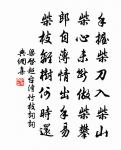 手握柴刀入柴山
柴心未斷做柴攀
郎自薄情出手易
柴枝離樹何時還
梁啓超台灣竹枝詞詞
典網集